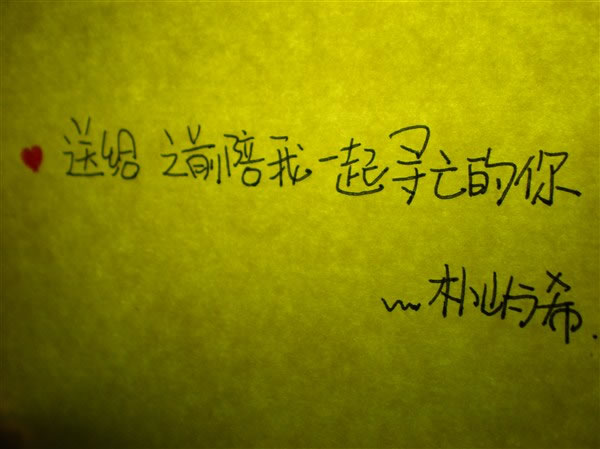 送给 之前陪我一起寻亡的你
朴屿希.